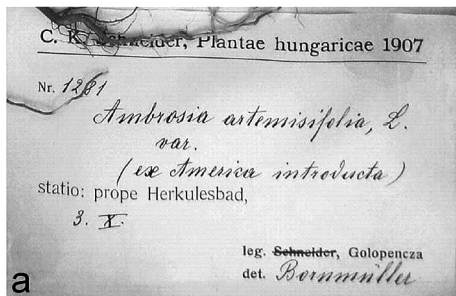 C. K. Schneider, Plantae hungaricae 1907
Nr. 1281
Ambrosia artemisifolia, L.
var.
(ex America introducta)
statio: prope Herkulesbad,
3. X.
leg. Schneider, Golopencza
det. Bornmüller
a